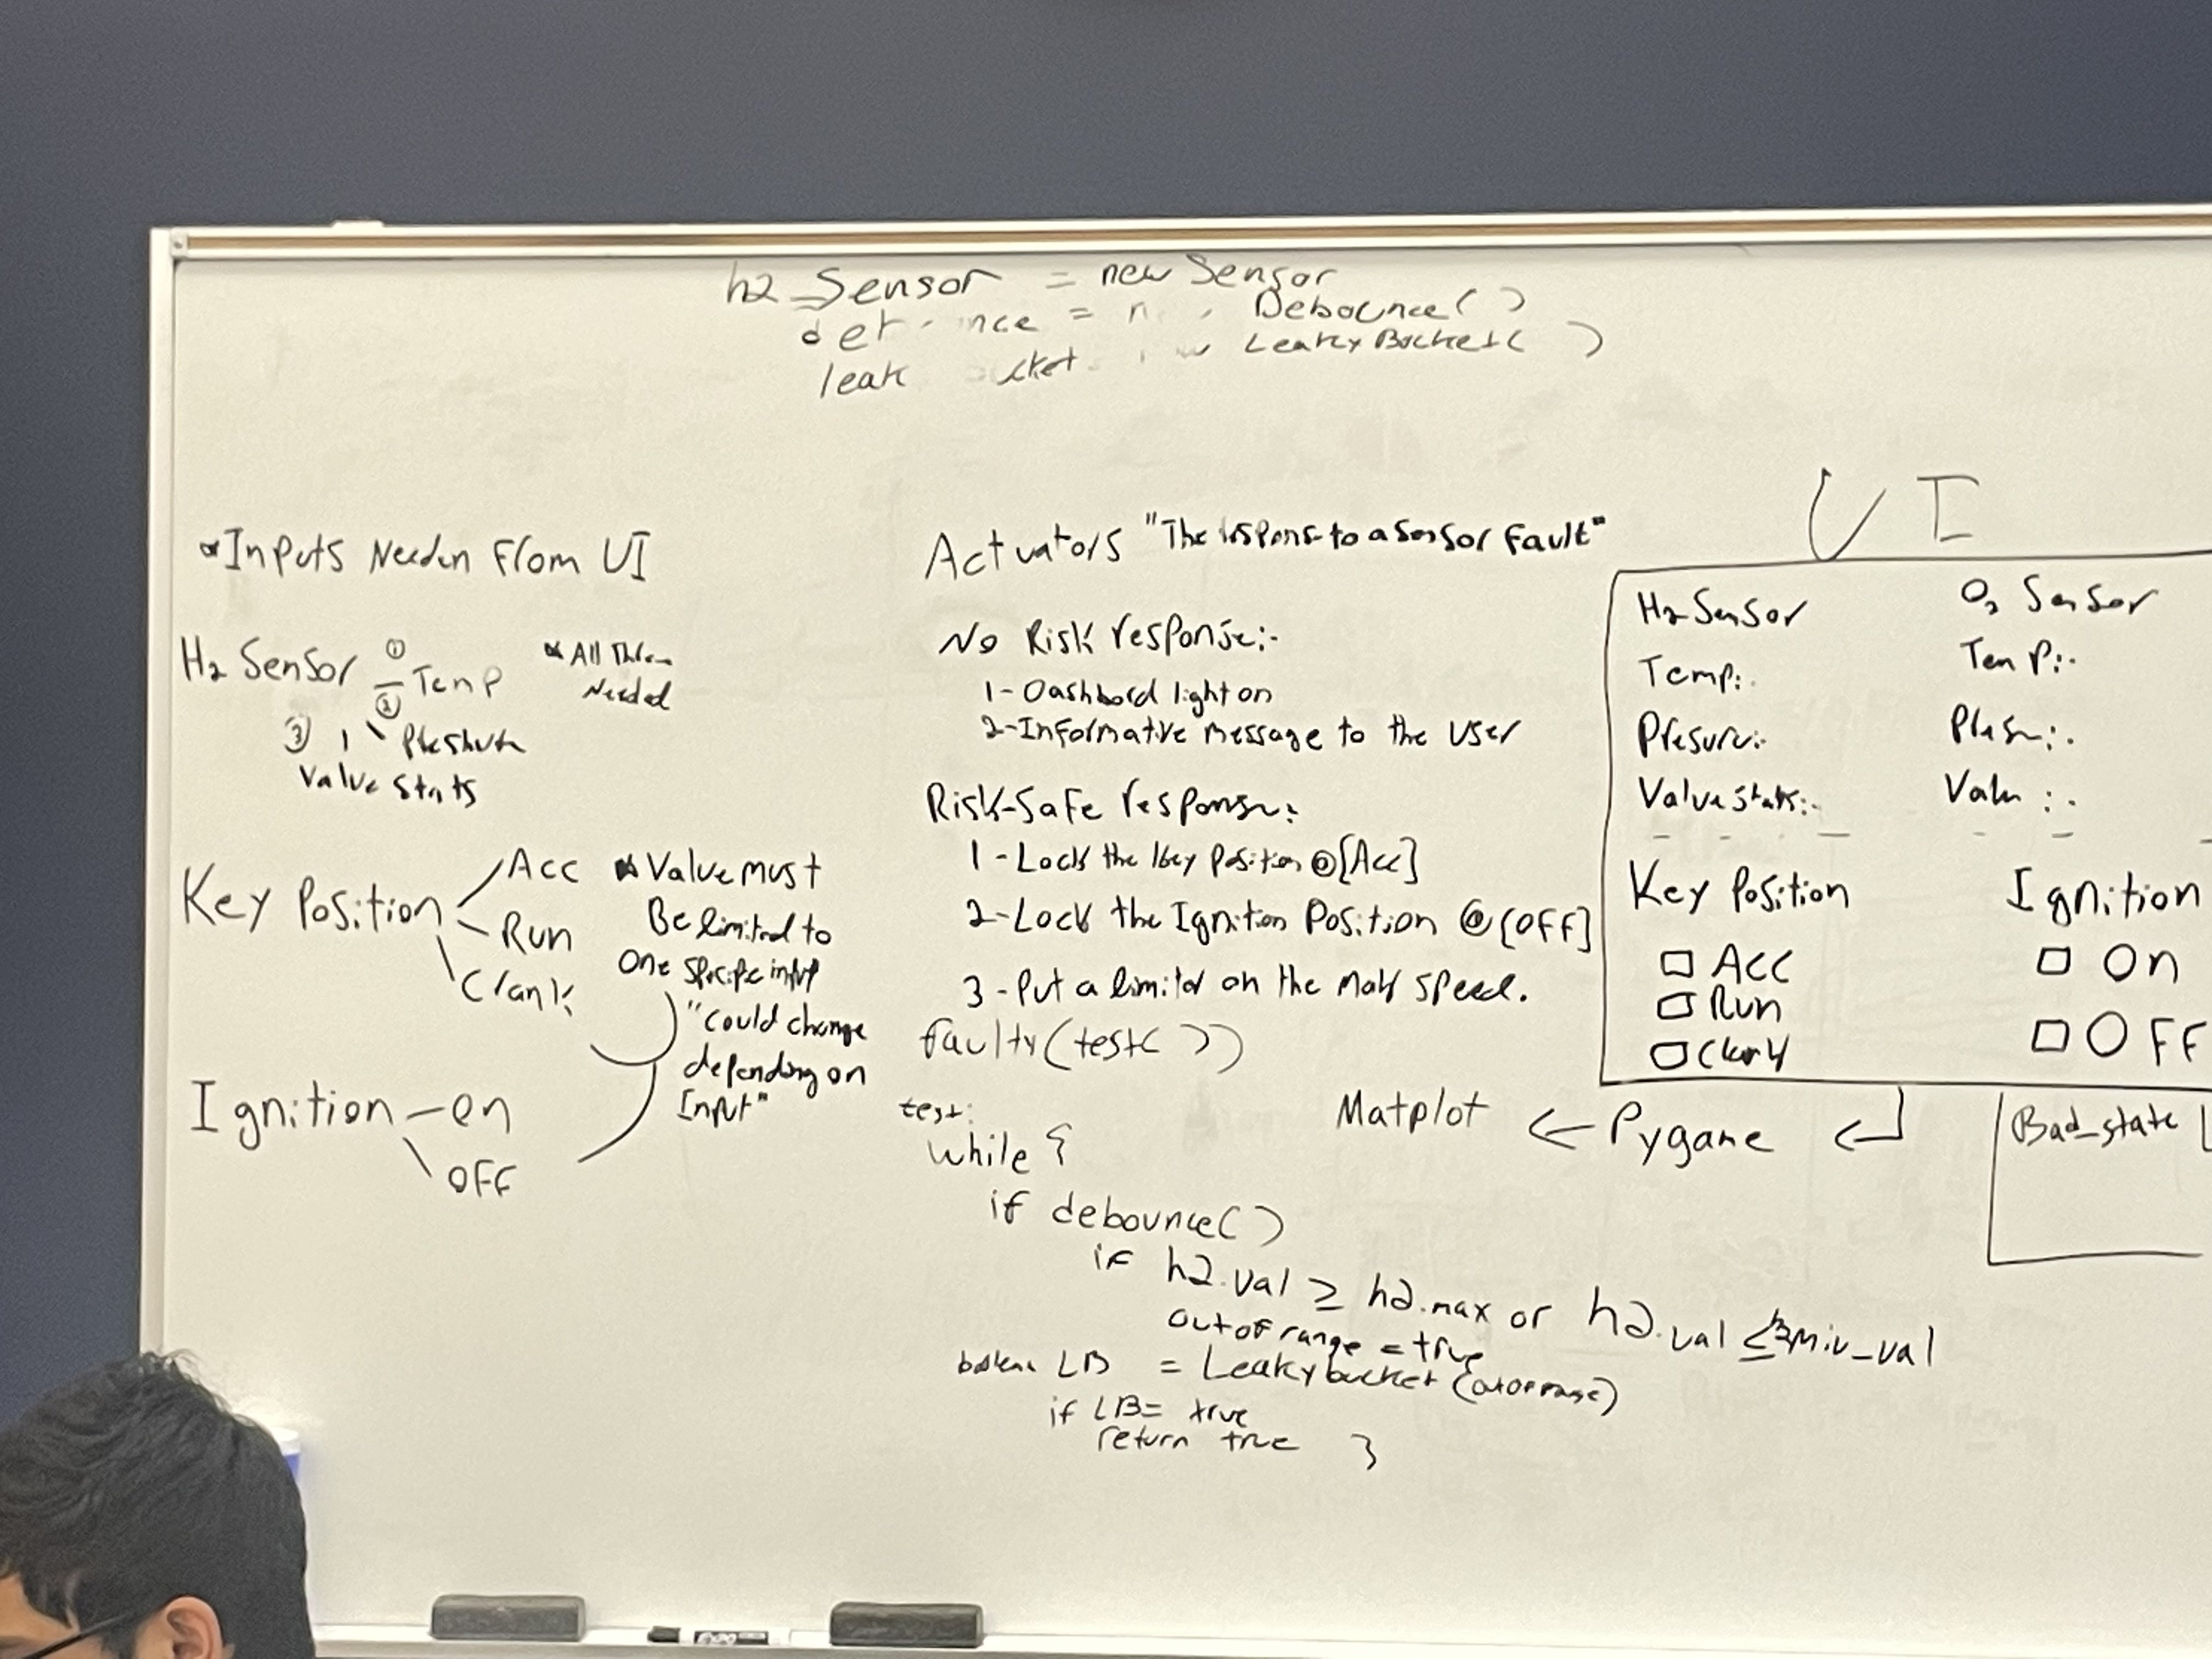 h2_Sensor = new Sensor
= Debounce( )
leak LeakyBucket( )
Inputs Needen From UI
H2 Sensor ① Temp
②
③ Preshure
Value Stats
* All Three
Needed
Key Position
Acc
Run
Crank
* Value must
Be limited to
One specific input
"Could change
depending on
Input"
Ignition - on
OFF
Actuators "The response to a Sensor Fault"
No Risk response:-
1- Dashbord light on
2- Informative message to the User
Risk-Safe response:
1 - Lock the key position @[Acc]
2- Lock the Ignition Position @[OFF]
3 - Put a limitor on the Motor Speed.
faulty(test( ))
test:
while {
if debounce( )
if h2.val ≥ h2.max or h2.val ≤ h2min_val
out of range = true
boolean LB = Leaky bucket (out of range)
if LB = true
return true }
UI
H2 Sensor
Temp:.
Presure:.
Value Stats:.
O2 Sensor
Temp:.
Presr:.
Value :.
Key Position
□ Acc
□ Run
□ Crank
Ignition
□ On
□ OFF
Matplot ← Pygame ↵
Bad_state